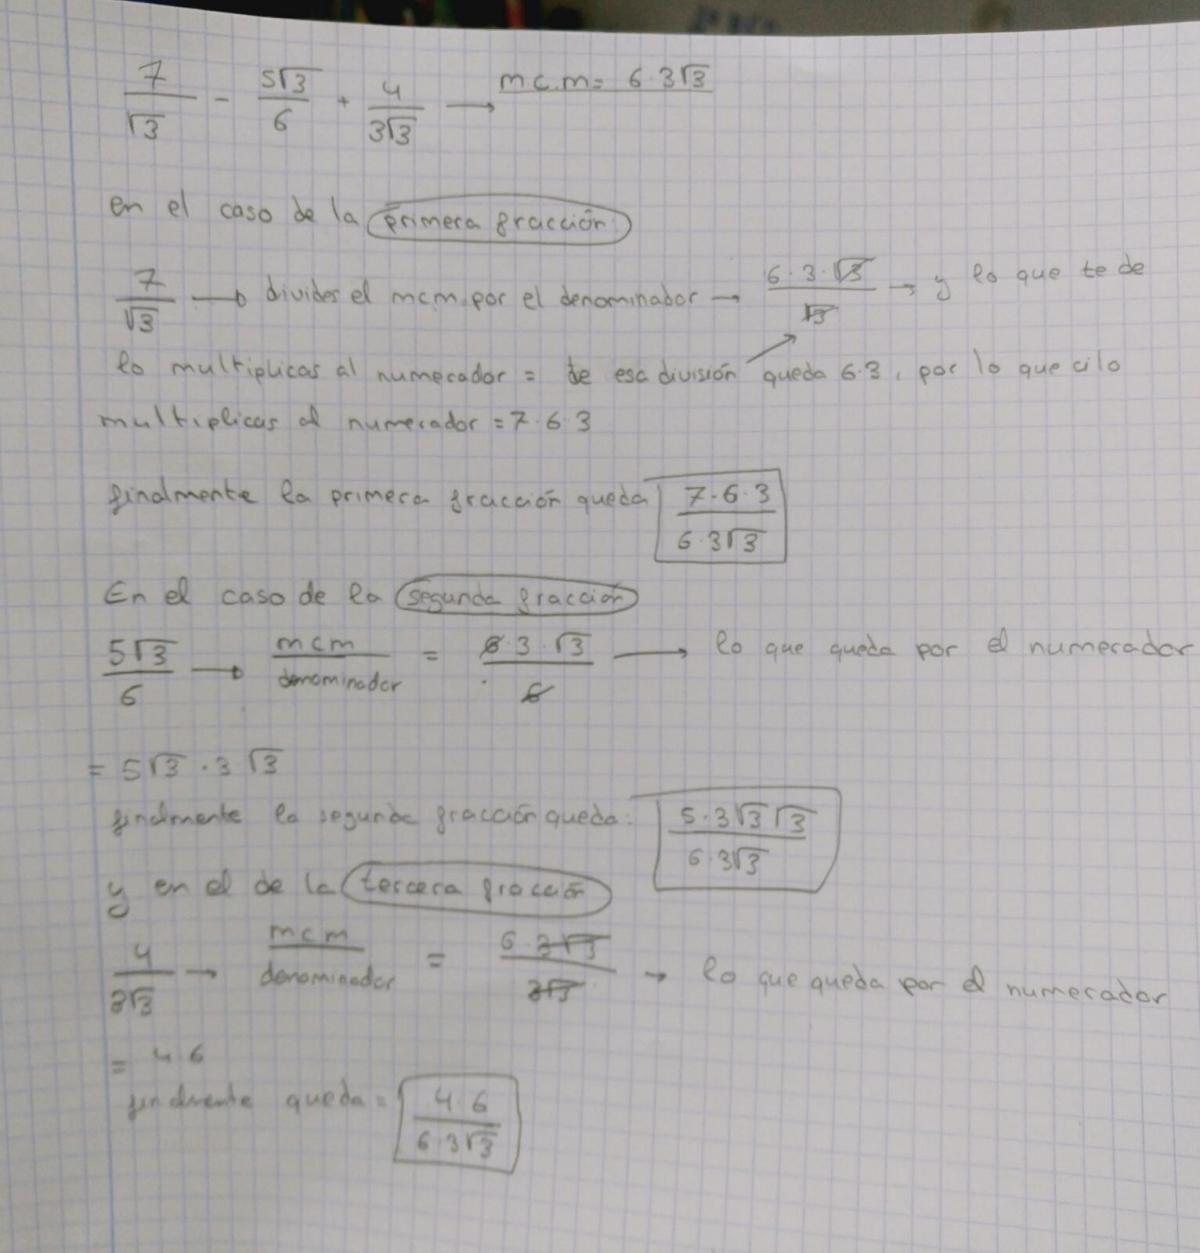 7/√3 - 5√3/6 + 4/3√3 → m.c.m = 6·3√3
en el caso de la primera fracción
7/√3 → divides el mcm por el denominador → 6·3·√3/√3 → y lo que te de
lo multiplicas al numerador = de esa división queda 6·3, por lo que ci lo
multiplicas al numerador = 7·6·3
finalmente la primera fracción queda 7·6·3/6·3√3
En el caso de la segunda fracción
5√3/6 → mcm/denominador = 6·3·√3/6 → lo que queda por el numerador
= 5√3·3√3
finalmente la segunda fracción queda: 5·3√3√3/6·3√3
y en el de la tercera fracción
4/3√3 → mcm/denominador = 6·3√3/3√3 → lo que queda por el numerador
= 4·6
finalmente queda = 4·6/6·3√3